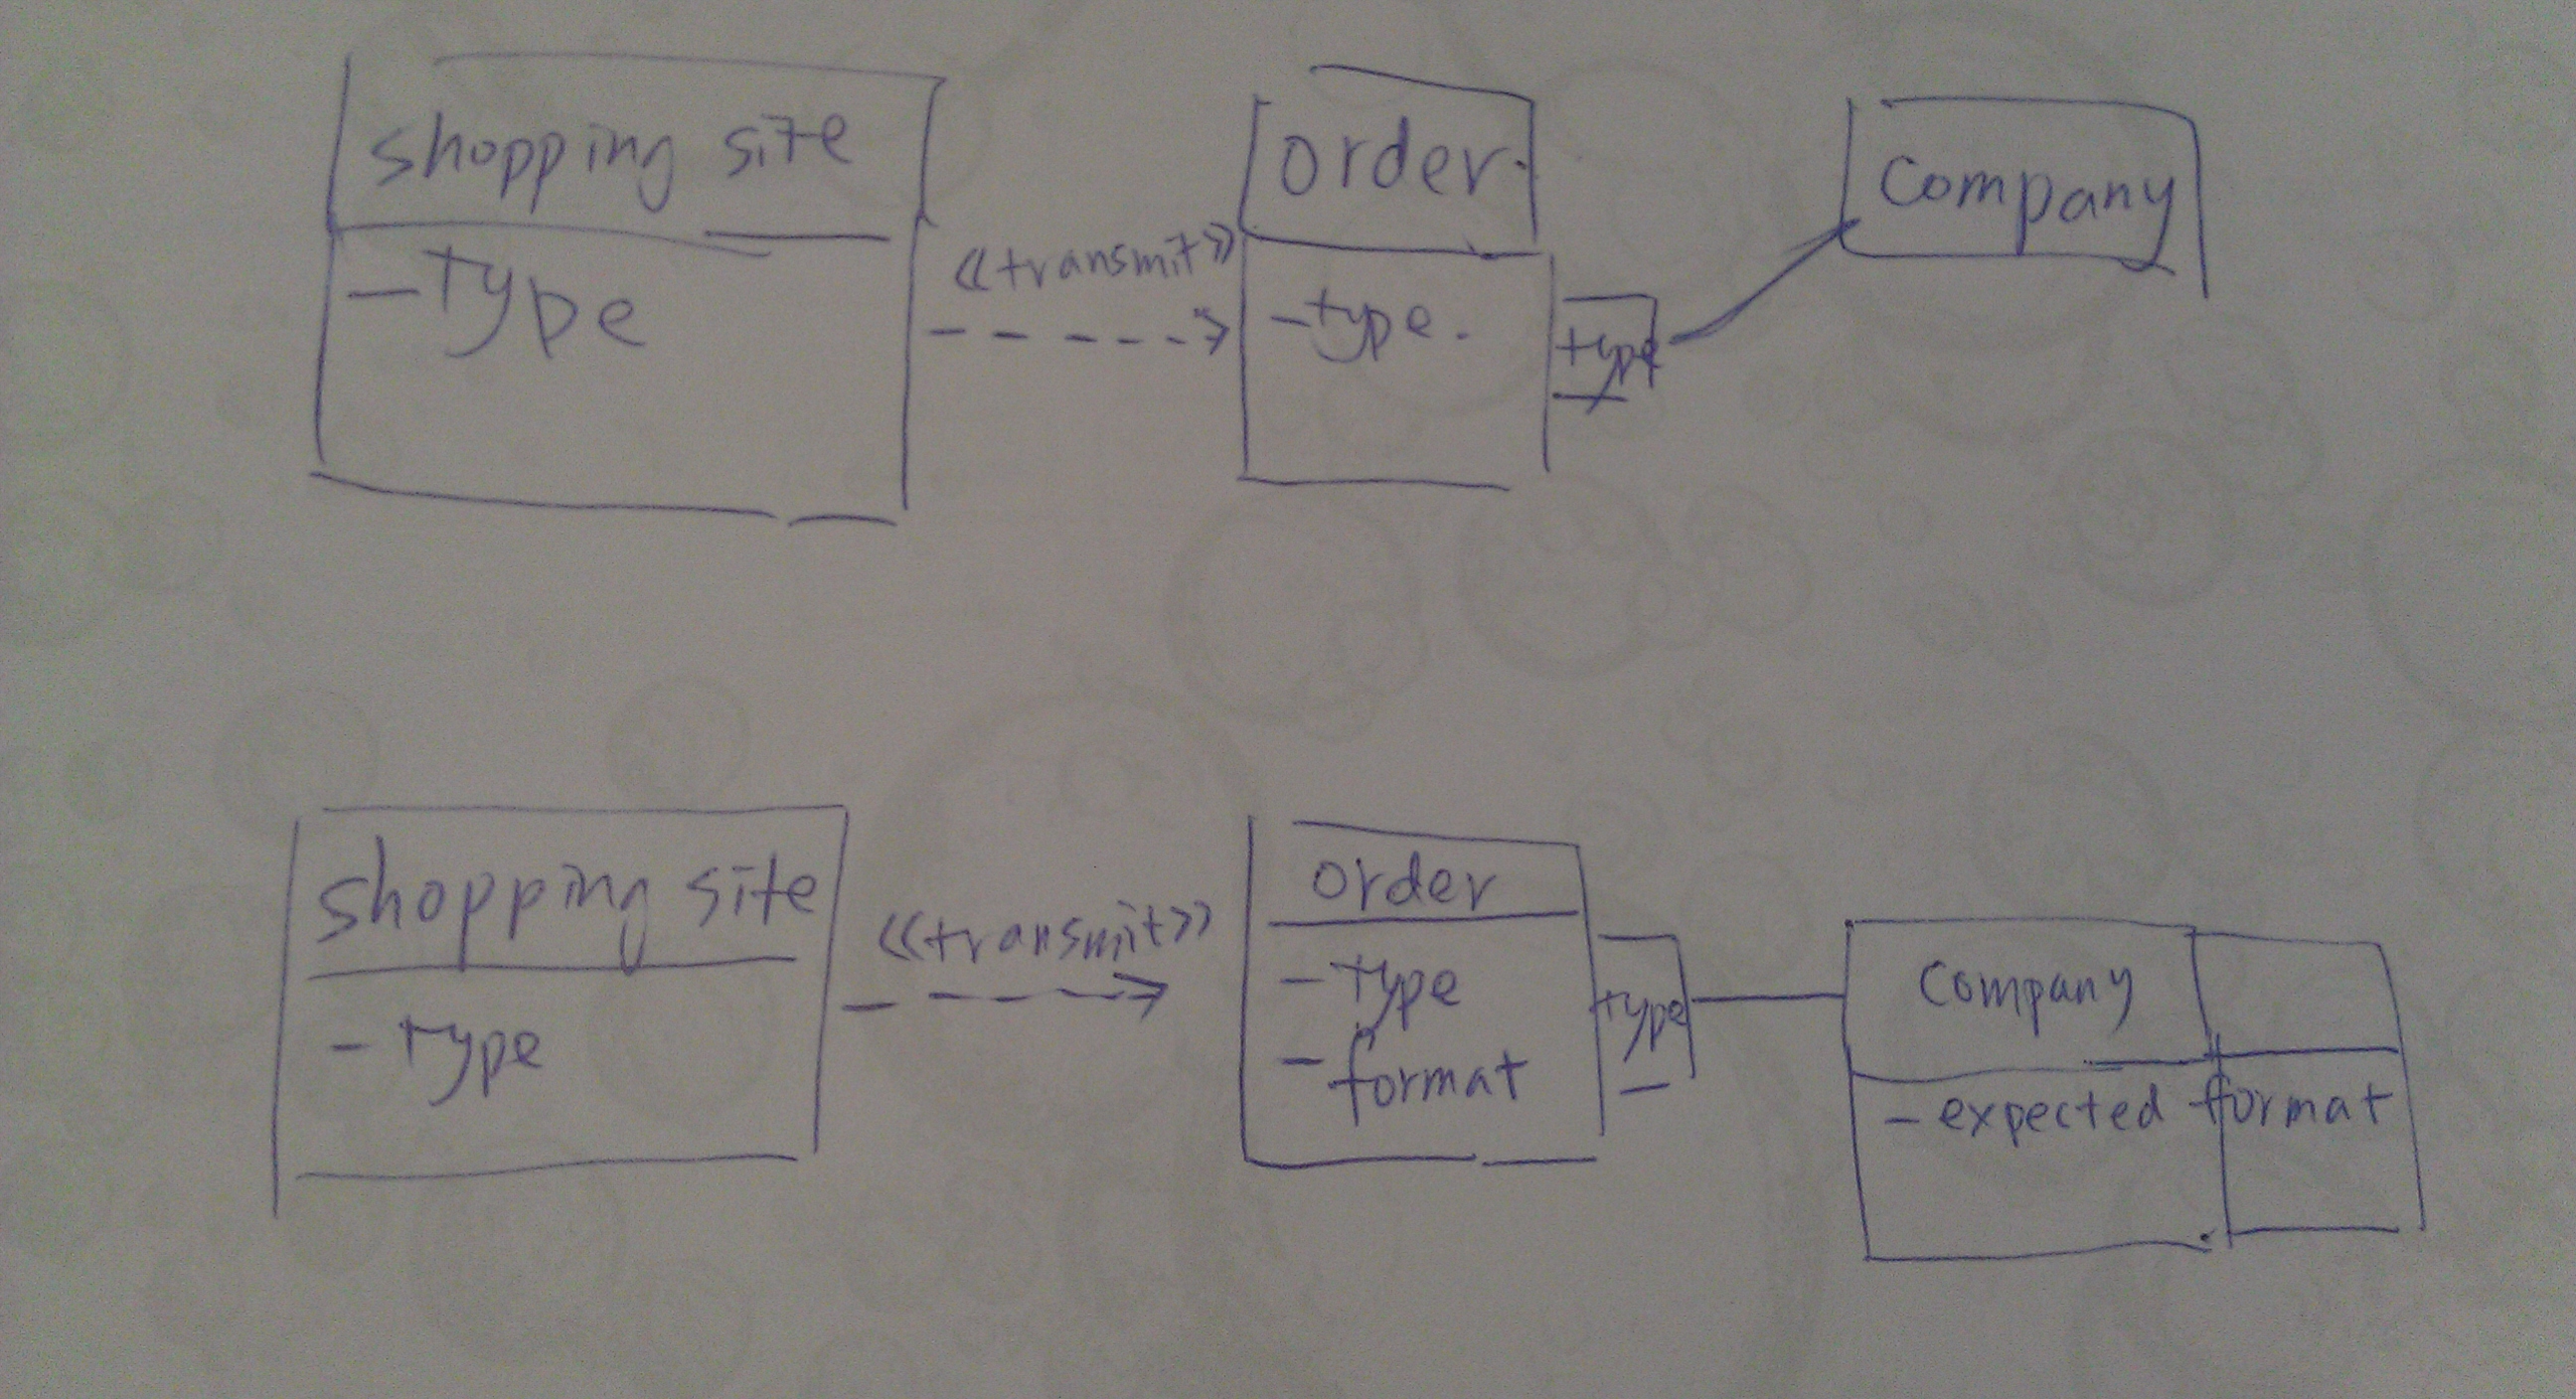 shopping site
- type
«transmit»
order
- type.
type
Company
shopping site
- type
«transmit»
order
- type
- format
type
Company
- expected format